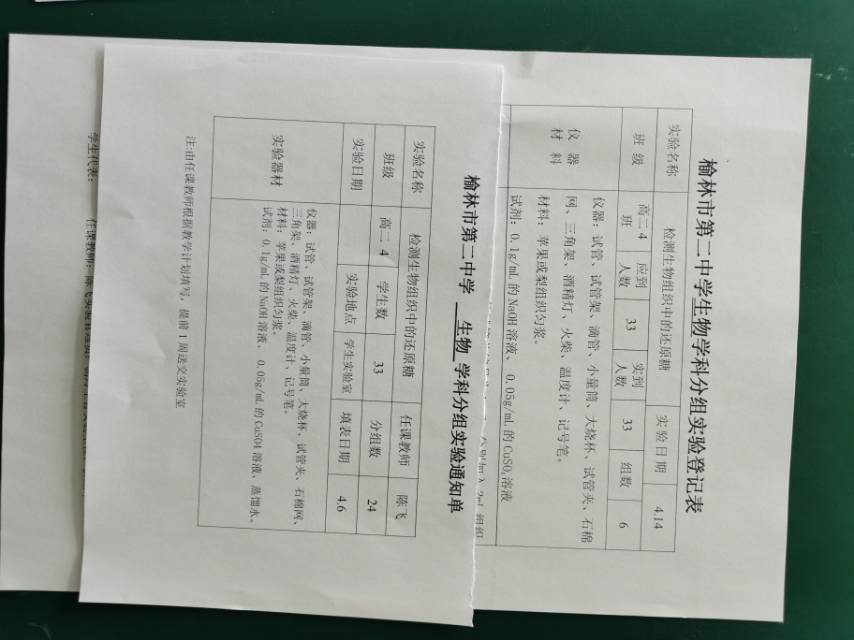 榆林市第二中学生物学科分组实验登记表
实验名称 检测生物组织中的还原糖 实验日期 4.14
班 级 高二 4 班 应到人数 33 实到人数 33 组数 6
仪 器 材 料
仪器：试管、试管架、滴管、小量筒、大烧杯、试管夹、石棉
网、三角架、酒精灯、火柴、温度计、记号笔。
材料：苹果或梨组织匀浆。
试剂：0.1g/mL 的 NaOH 溶液、 0.05g/mL 的 CuSO₄溶液
榆林市第二中学 生物 学科分组实验通知单
实验名称 检测生物组织中的还原糖 任课教师 陈飞
班级 高二 4 学生数 33 分组数 24
实验日期 实验地点 学生实验室 填表日期 4.6
实验器材
仪器：试管、试管架、滴管、小量筒、大烧杯、试管夹、石棉网、
三角架、酒精灯、火柴、温度计、记号笔。
材料：苹果或梨组织匀浆。
试剂：0.1g/mL 的 NaOH 溶液、 0.05g/mL 的 CuSO4 溶液、蒸馏水。
注:由任课教师根据教学计划填写，提前 1 周送交实验室
学生代表： 任课教师：陈飞